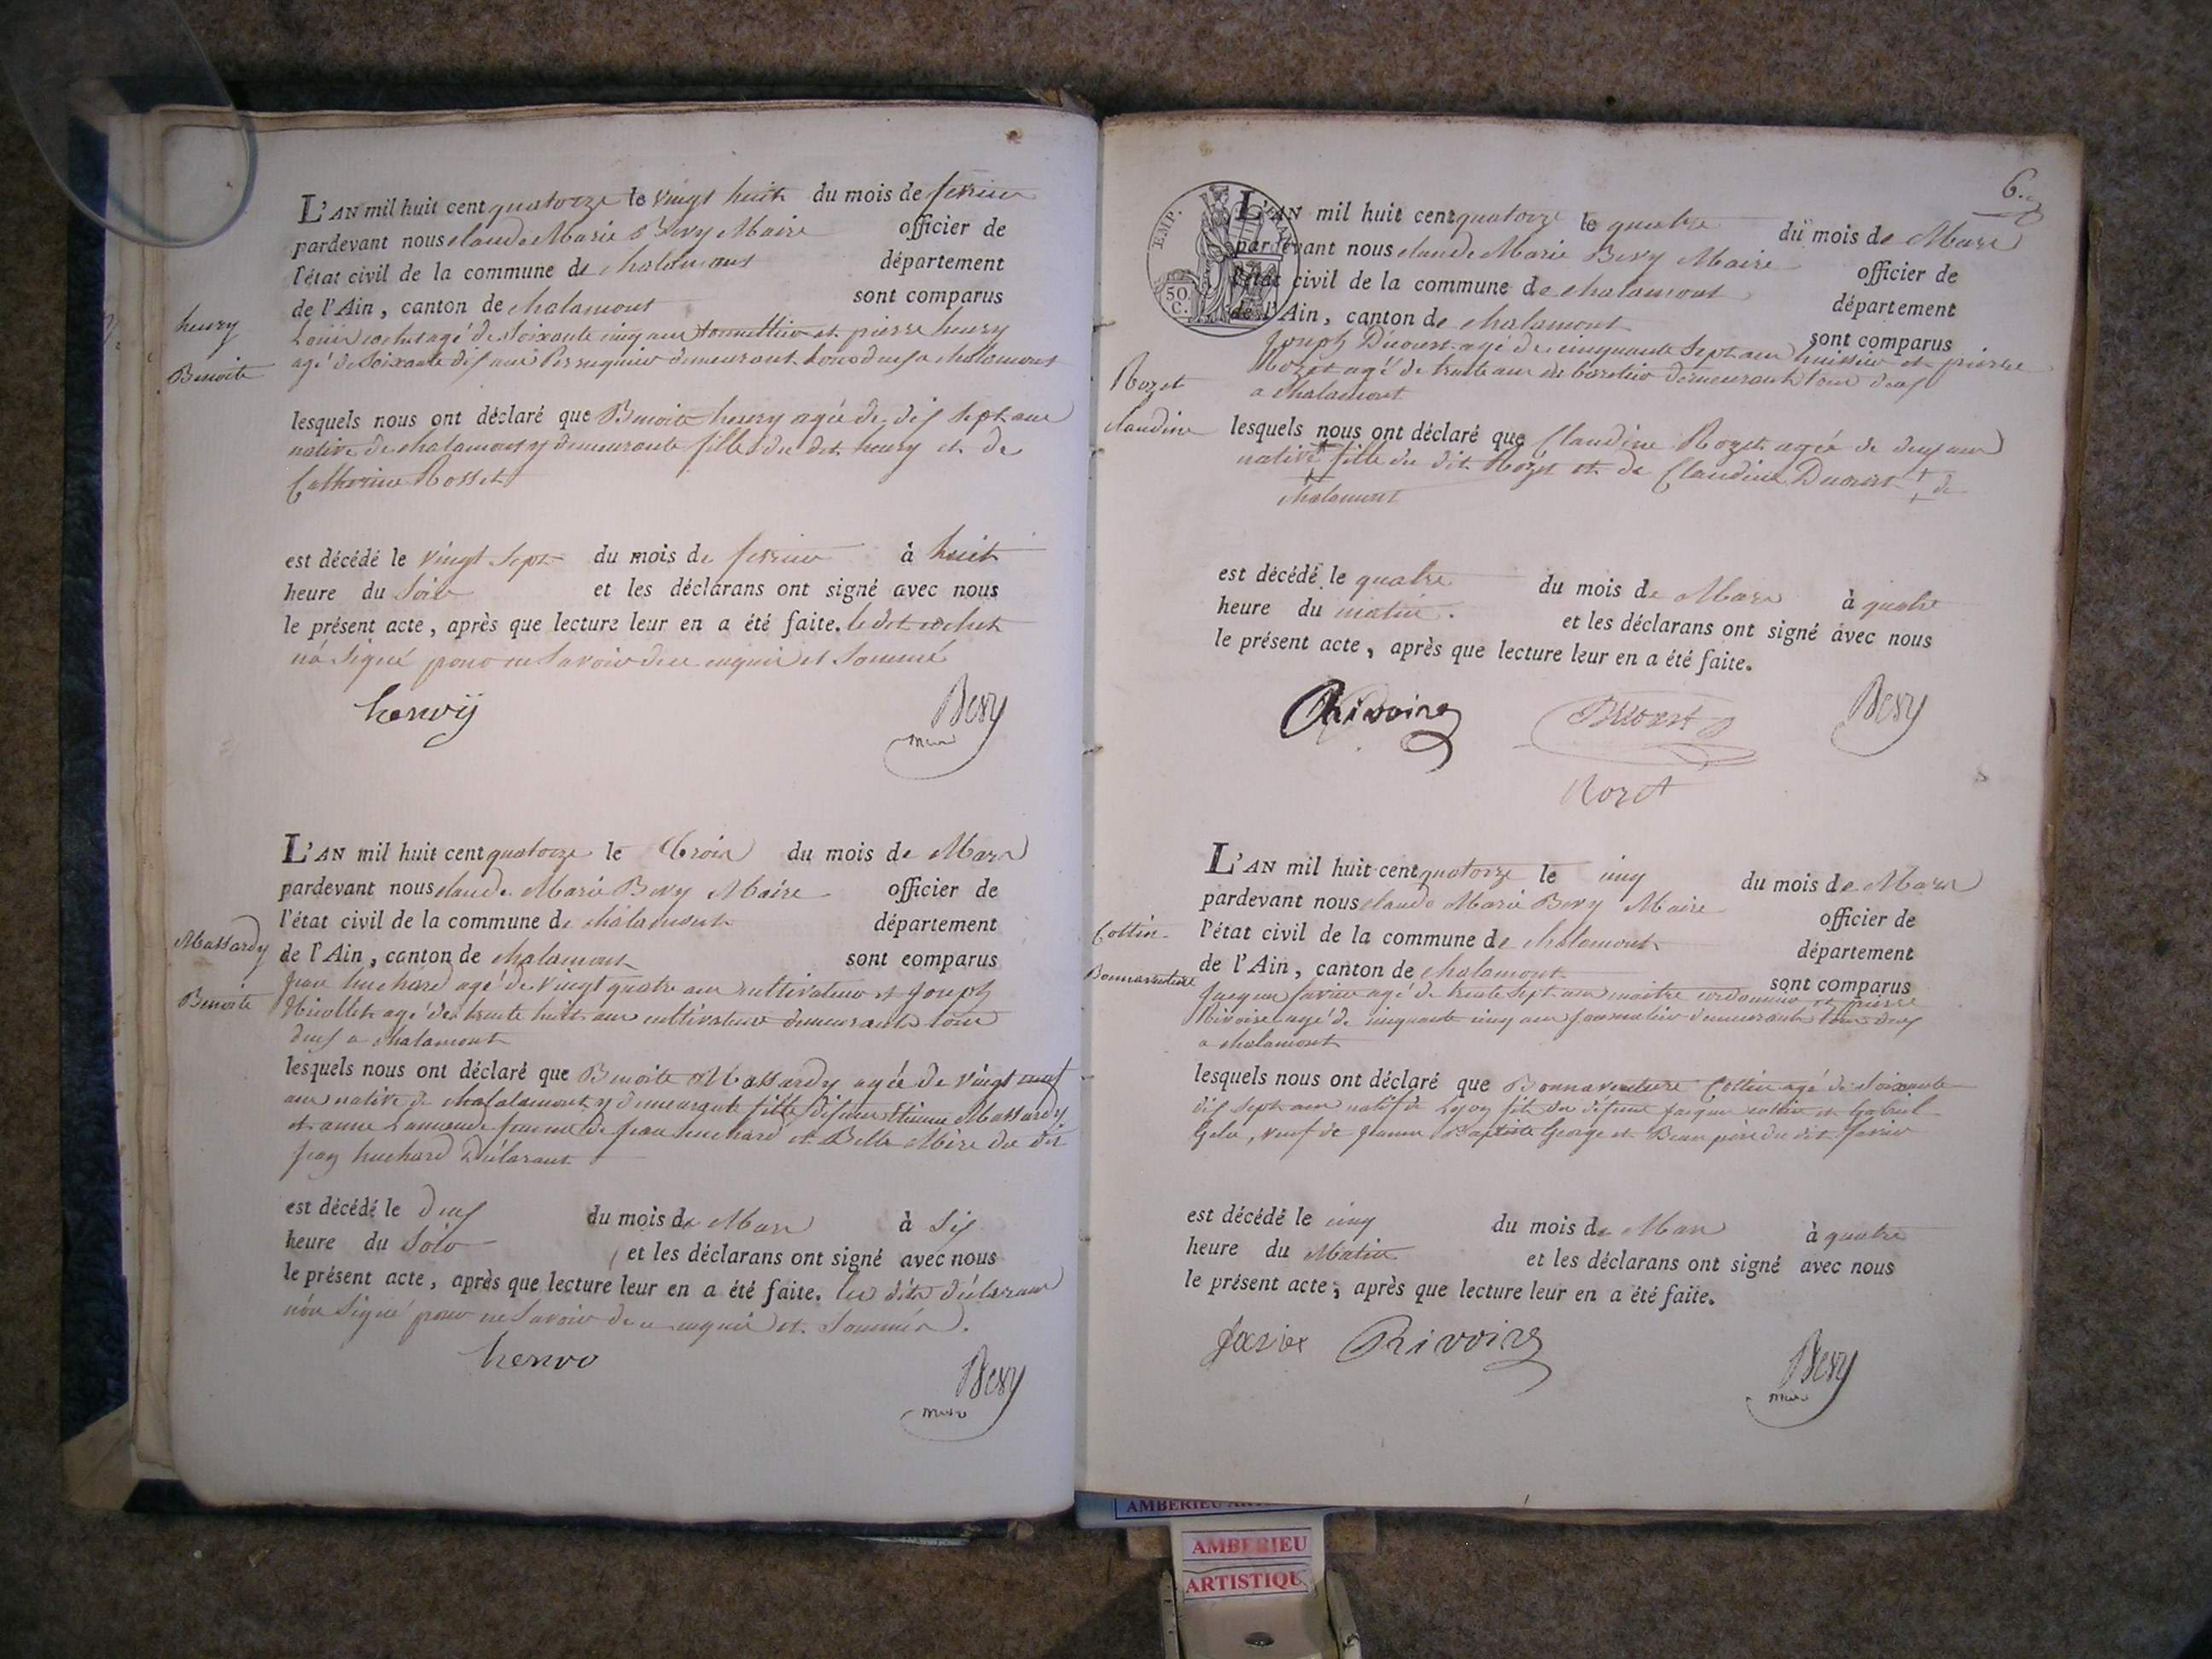 L'AN mil huit cent quatorze le vingt huit du mois de fevrier
pardevant nous claude Marie Bevy Maire officier de
l'état civil de la commune de chalamont département
de l'Ain, canton de chalamont sont comparus
henry
Benoite
Louis cochet agé de soixante cinq ans et pierre henry
agé de soixante dix ans Perruquier demeurant tous deux a chalamont
lesquels nous ont déclaré que Benoite henry agée de dix sept ans
native de chalamont y demeurante fille du dit henry et de
Catherine Rosset
est décédé le vingt sept du mois de fevrier à huit
heure du soir et les déclarans ont signé avec nous
le présent acte, après que lecture leur en a été faite. le dit cochet
n'a signé pour ne savoir de ce enquis et sommé
henry
Bevy
maire
L'AN mil huit cent quatorze le trois du mois de Mars
pardevant nous claude Marie Bevy Maire officier de
l'état civil de la commune de chalamont département
de l'Ain, canton de chalamont sont comparus
Massardy
Benoite
jean huchard agé de vingt quatre ans cultivateur et joseph
Niollet agé de trente huit ans cultivateur demeurants tous
deux a chalamont
lesquels nous ont déclaré que Benoite Massardy agée de vingt neuf
ans native de chalamont y demeurante fille de feu Etienne Massardy
et anne femme de jean huchard et Belle Mère du dit
jean huchard Déclarant
est décédé le deux du mois de Mars à six
heure du soir et les déclarans ont signé avec nous
le présent acte, après que lecture leur en a été faite. les dits déclarans
n'on signé pour ne savoir de ce enquis et sommés.
Bevy
maire
6.
EMP.
50.
C.
L'AN mil huit cent quatorze le quatre du mois de Mars
pardevant nous claude Marie Bevy Maire officier de
l'état civil de la commune de chalamont département
de l'Ain, canton de chalamont sont comparus
Rozet
claudine
joseph Ducurst agé de cinquante sept ans huissier et pierre
Rozet agé de trente ans cabaretier demeurants tous deux
a chalamont
lesquels nous ont déclaré que Claudine Rozet agée de deux ans
native + fille du dit Rozet et de Claudine Ducurst + de
chalamont
est décédé le quatre du mois de Mars à quatre
heure du matin. et les déclarans ont signé avec nous
le présent acte, après que lecture leur en a été faite.
Rivoire
Bevy
Rozet
L'AN mil huit cent quatorze le cinq du mois de Mars
pardevant nous claude Marie Bevy Maire officier de
l'état civil de la commune de chalamont département
de l'Ain, canton de chalamont sont comparus
Cottin
Bonnaventure
jacques favier agé de trente sept ans maitre cordonnier et pierre
Rivoire agé de cinquante cinq ans journalier demeurants tous deux
a chalamont
lesquels nous ont déclaré que Bonnaventure Cottin agé de soixante
dix sept ans natif de Lyon fils de défunt jacques cottin et Gabriel
veuf de jeanne Baptiste George et Beau père du dit favier
est décédé le cinq du mois de Mars à quatre
heure du Matin et les déclarans ont signé avec nous
le présent acte, après que lecture leur en a été faite.
favier Rivoire
Bevy
maire
AMBERIEU
AMBERIEU
ARTISTIQU